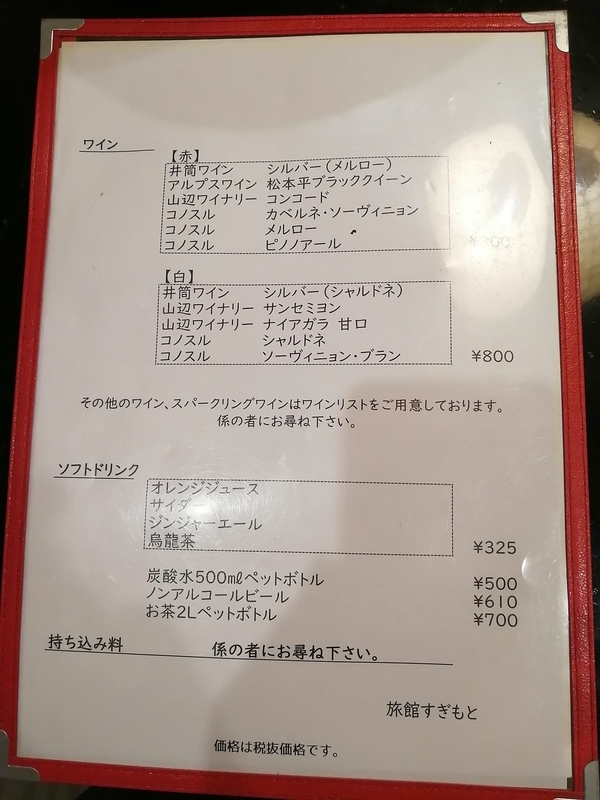 ワイン
【赤】
井筒ワイン シルバー(メルロー)
アルプスワイン 松本平ブラッククイーン
山辺ワイナリー コンコード
コノスル カベルネ・ソーヴィニョン
コノスル メルロー
コノスル ピノノアール
【白】
井筒ワイン シルバー(シャルドネ)
山辺ワイナリー サンセミヨン
山辺ワイナリー ナイアガラ 甘口
コノスル シャルドネ
コノスル ソーヴィニョン・ブラン ¥800
その他のワイン、スパークリングワインはワインリストをご用意しております。
係の者にお尋ね下さい。
ソフトドリンク
オレンジジュース
サイダー
ジンジャーエール
烏龍茶 ¥325
炭酸水500mlペットボトル ¥500
ノンアルコールビール ¥610
お茶2Lペットボトル ¥700
持ち込み料 係の者にお尋ね下さい。
旅館すぎもと
価格は税抜価格です。